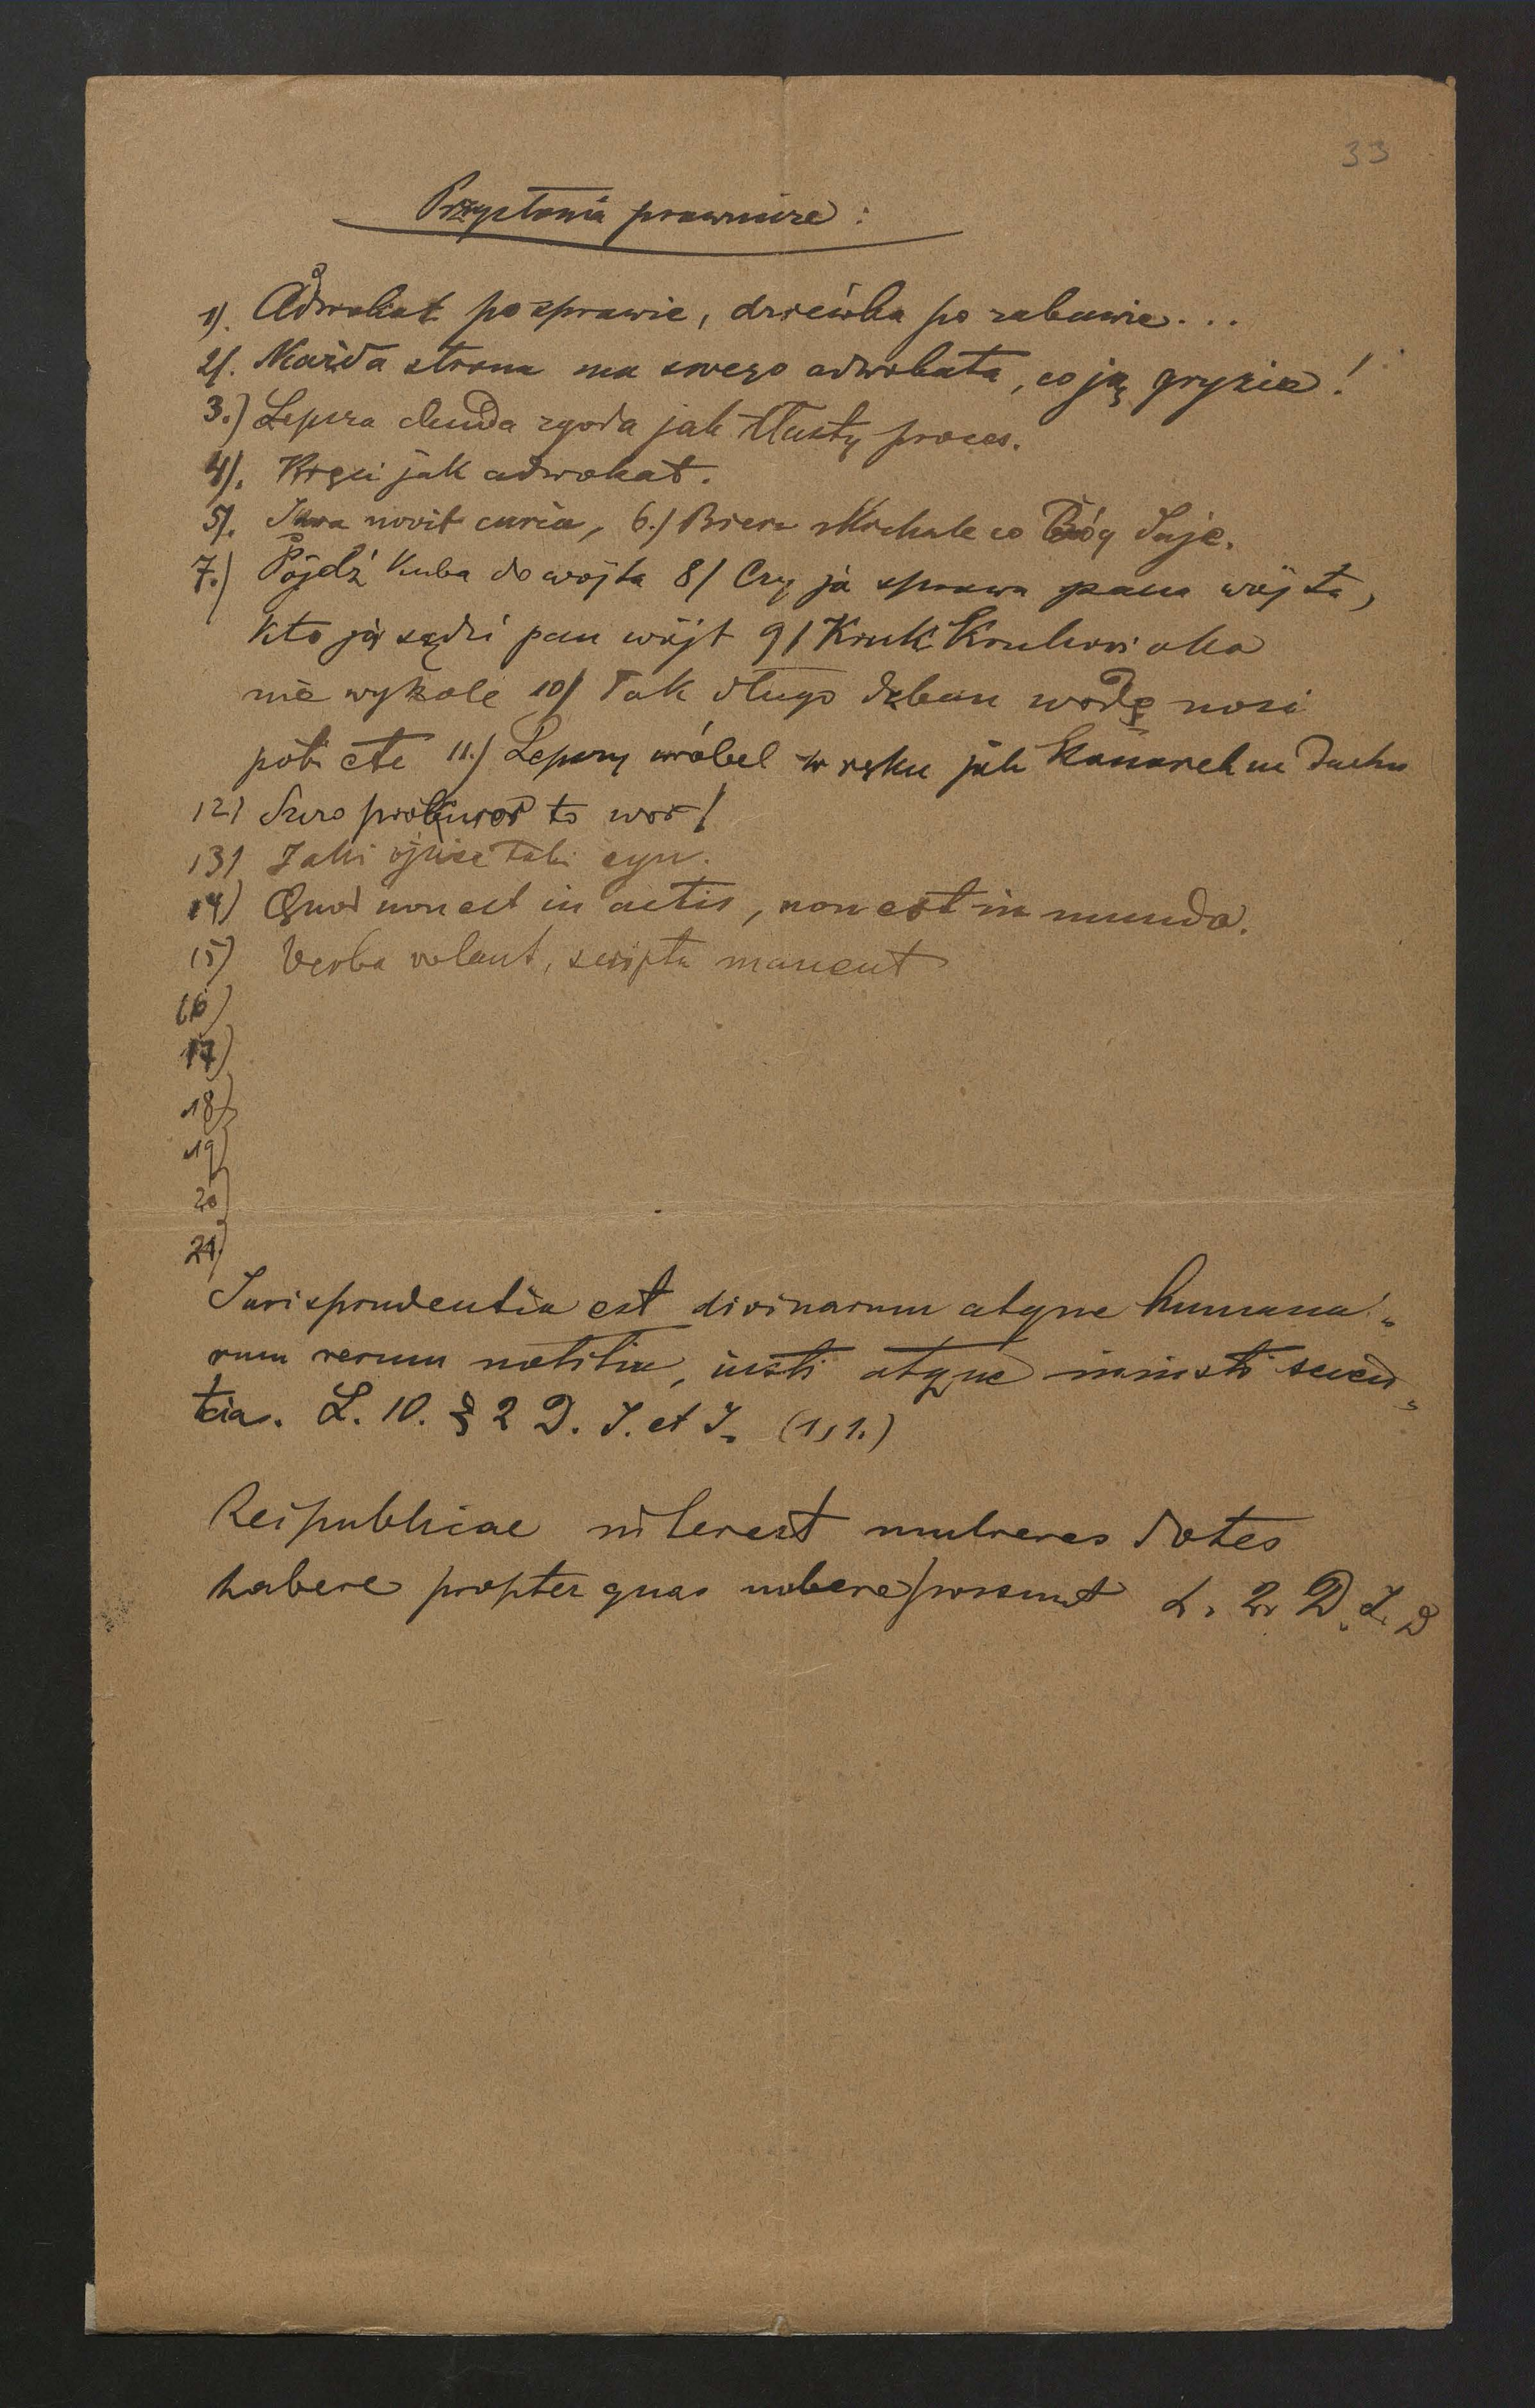 33
Przysłowia prawnicze:
1). Adwokat po sprawie, dziewka po zabawie...
2). Każda strona ma swego adwokata, co ją gryzie!
3.) Lepsza chuda zgoda jak tłusty proces.
4). Kręci jak adwokat.
5). Iura novit curia, 6.) Bierz Michale co Bóg daje.
7.) Pójdź Kuba do wójta 8) Czyja sprawa pana wójta,
kto ją sądzi pan wójt 9) Kruk Krukowi oka
nie wykole 10) Tak długo dzban wodę nosi
póki etc 11.) Lepszy wróbel w ręku jak kanarek na dachu
12) prokuror to wor!
13) Jaki ojciec taki syn.
14) Quod non est in actis, non est in mundo.
15) Verba volant, scripta manent
16)
17)
18)
19)
20)
21)
Jurisprudentia est divinarum atque humana„
rum rerum notitia, iusti atque iniusti scien„
tia. L. 10. § 2 D. J. et J. (1,1.)
Reipublicae interest mulieres dotes
habere propter quas nubere possunt L. 2. D. J. D